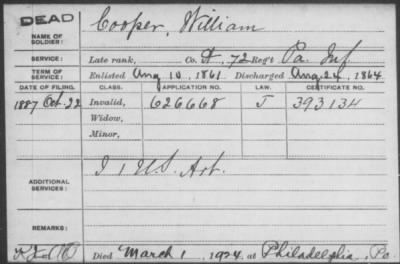 DEAD
NAME OF SOLDIER: Cooper, William
SERVICE: Late rank, Co. A, 72 Reg't Pa. Inf
TERM OF SERVICE: Enlisted Aug 10, 1861. Discharged Aug. 24, 1864
DATE OF FILING. CLASS. APPLICATION NO. LAW. CERTIFICATE NO.
1887 Oct. 22 Invalid, 626668 J 393134
Widow,
Minor,
ADDITIONAL SERVICES: I 1 U.S. Art.
REMARKS:
Died March 1, 1924, at Philadelphia, Pa